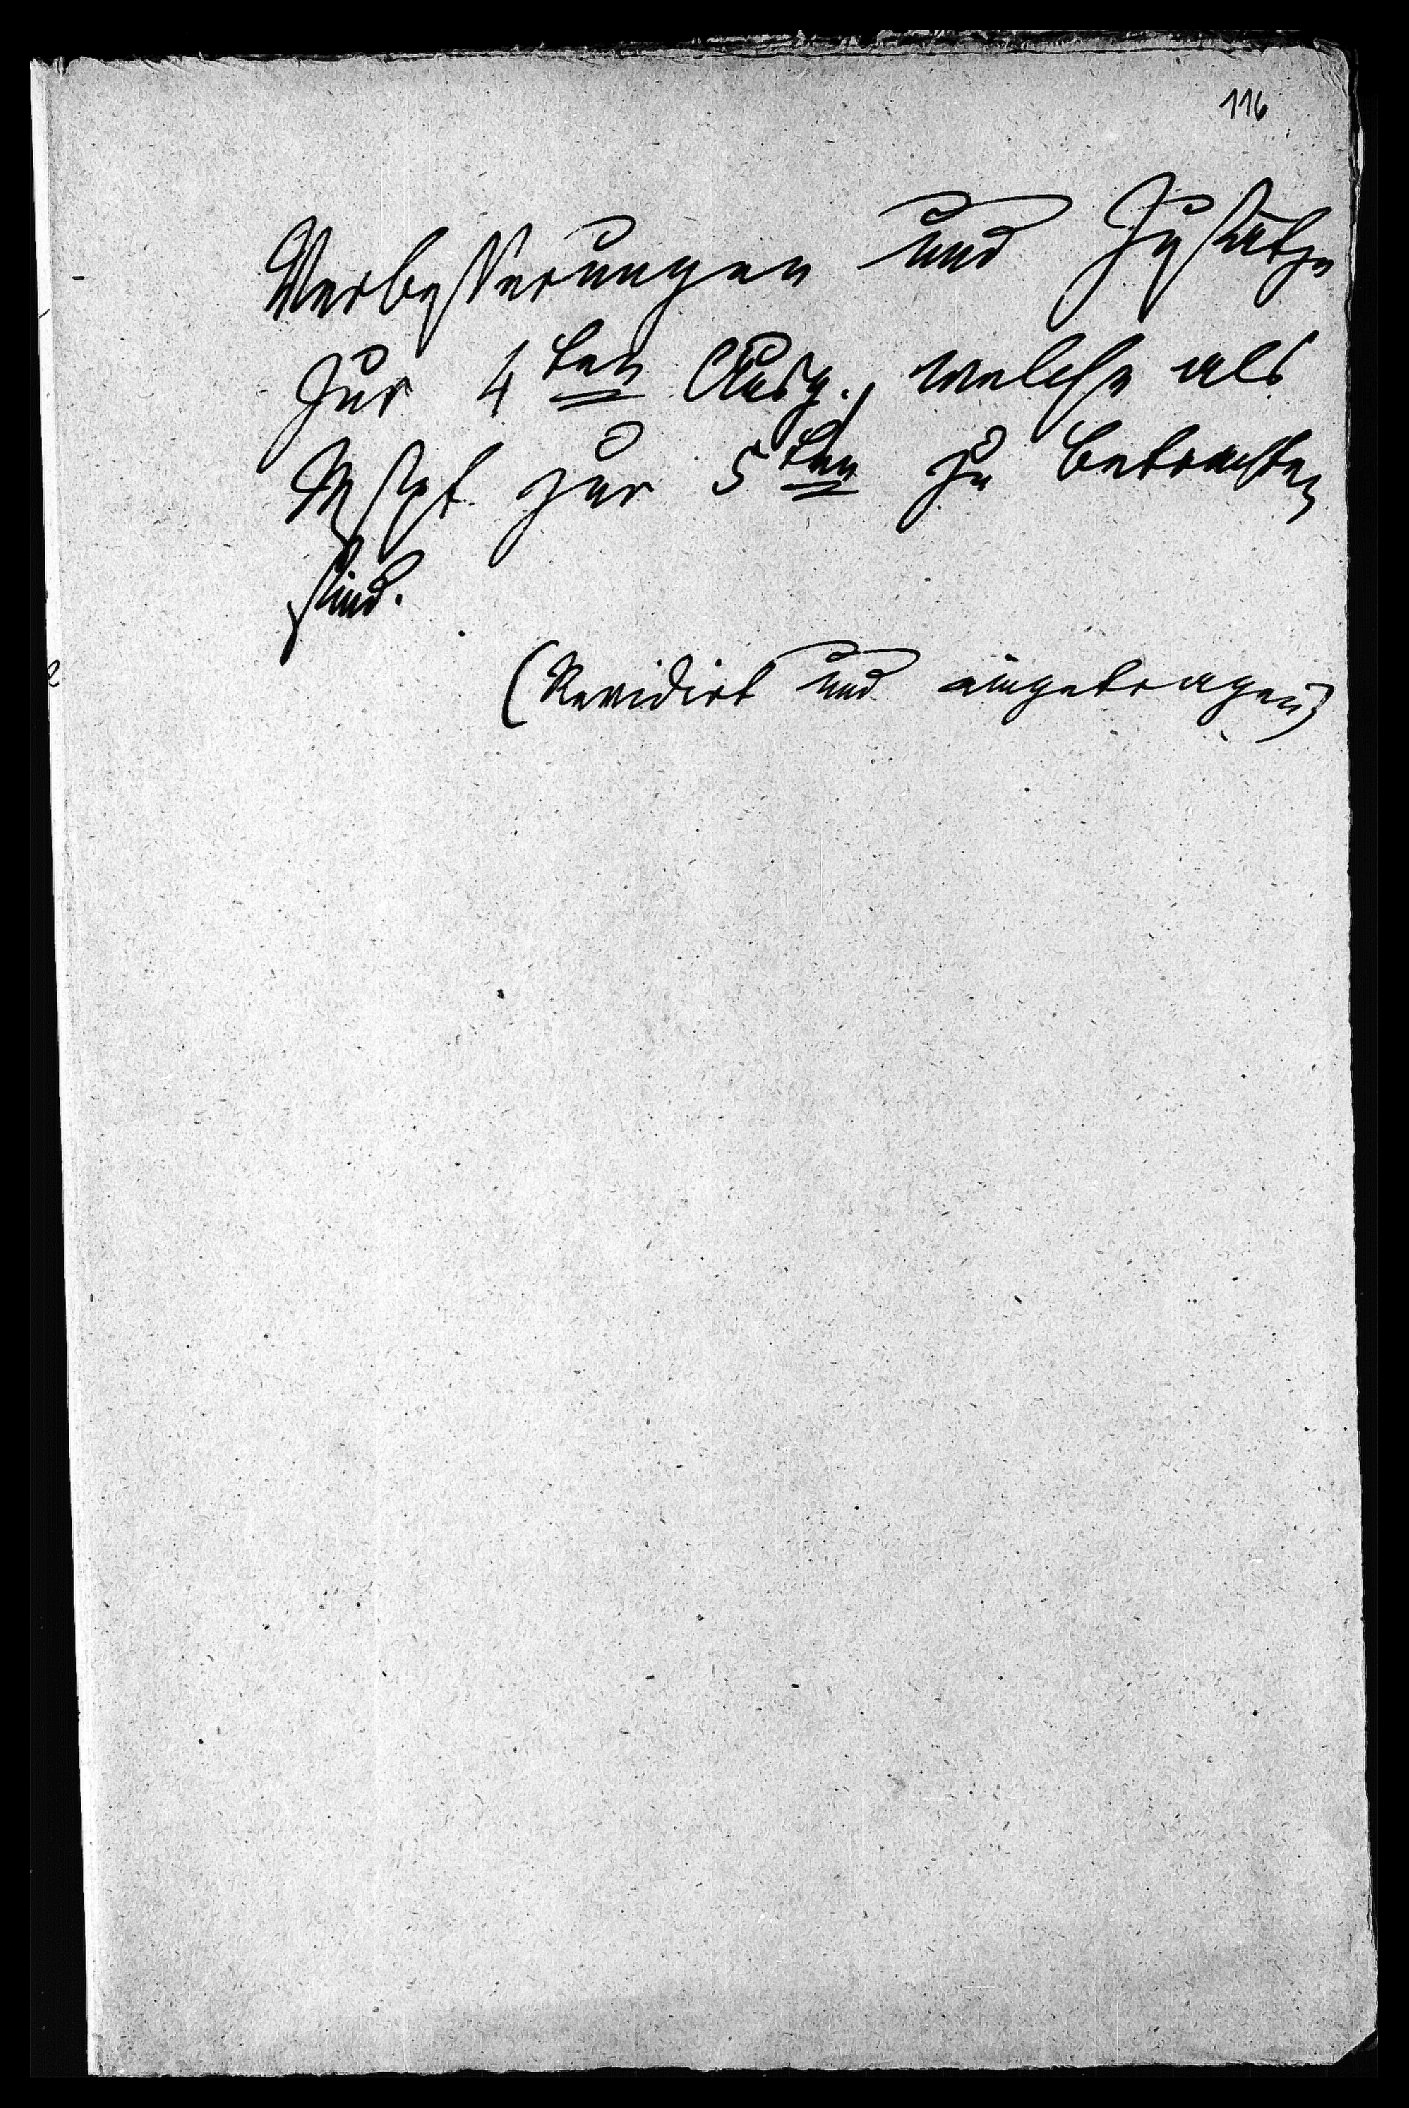 116
Verbesserungen und Zusätze
zur 4ten Ausg., welche als
Mspt zur 5ten zu betrachten
sind.
(Revidirt und eingetragen)